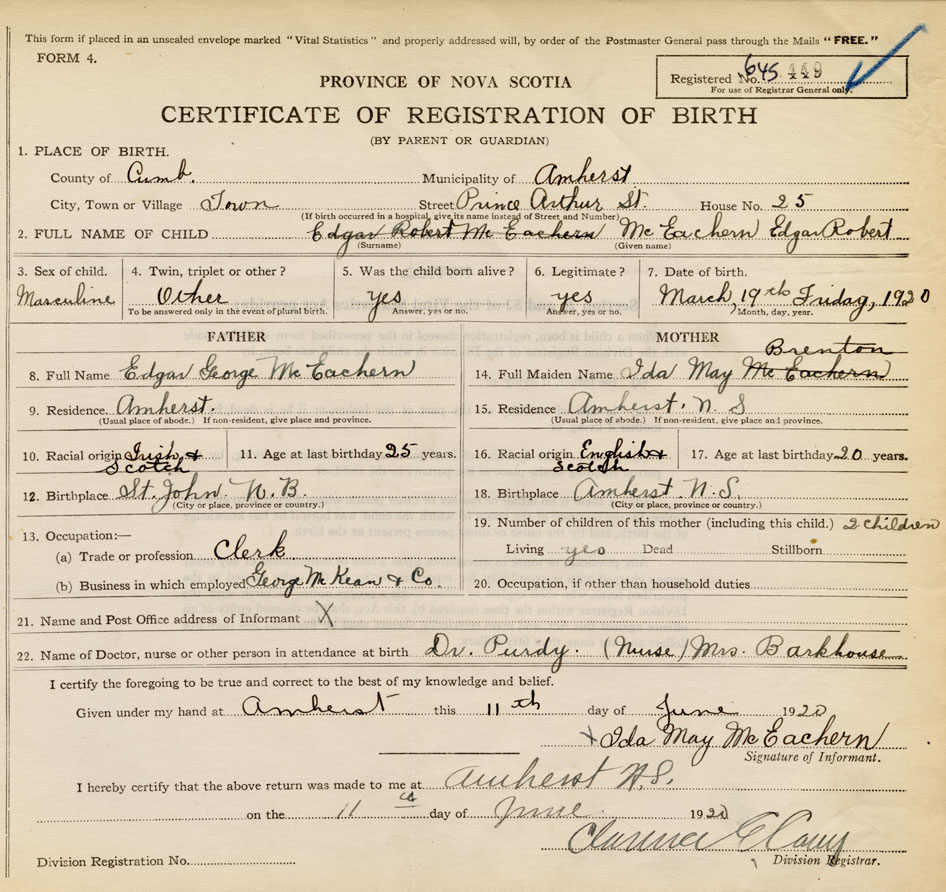 This form if placed in an unsealed envelope marked "Vital Statistics" and properly addressed will, by order of the Postmaster General pass through the Mails "FREE."
FORM 4.
Registered No. 645 449
For use of Registrar General only.
PROVINCE OF NOVA SCOTIA
CERTIFICATE OF REGISTRATION OF BIRTH
(BY PARENT OR GUARDIAN)
1. PLACE OF BIRTH.
County of Cumb. Municipality of Amherst
City, Town or Village Town Street Prince Arthur St. House No. 25
(If birth occurred in a hospital, give its name instead of Street and Number)
2. FULL NAME OF CHILD Edgar Robert Mc Eachern Mc Eachern Edgar Robert
(Surname) (Given name)
3. Sex of child. 4. Twin, triplet or other? 5. Was the child born alive? 6. Legitimate? 7. Date of birth.
Masculine Other yes yes March, 19th Friday, 1920
To be answered only in the event of plural birth. Answer, yes or no. Answer, yes or no. Month, day, year.
FATHER MOTHER
Brenton
8. Full Name Edgar George Mc Eachern 14. Full Maiden Name Ida May Mc Eachern
9. Residence. Amherst. 15. Residence Amherst. N. S
(Usual place of abode.) If non-resident, give place and province. (Usual place of abode.) If non-resident, give place and province.
10. Racial origin Irish & Scotch 11. Age at last birthday 25 years. 16. Racial origin English & Scotch 17. Age at last birthday 20 years.
12. Birthplace St. John N. B. 18. Birthplace Amherst. N. S.
(City or place, province or country.) (City or place, province or country.)
13. Occupation:— 19. Number of children of this mother (including this child.) 2 children
(a) Trade or profession Clerk Living yes Dead Stillborn
(b) Business in which employed George McKean & Co. 20. Occupation, if other than household duties
21. Name and Post Office address of Informant X
22. Name of Doctor, nurse or other person in attendance at birth Dr. Purdy. (Nurse) Mrs. Barkhouse
I certify the foregoing to be true and correct to the best of my knowledge and belief.
Given under my hand at Amherst this 11th day of June 1920
x Ida May Mc Eachern
Signature of Informant.
I hereby certify that the above return was made to me at Amherst N.S.
on the 11th day of June 1920
Clarence E
Division Registration No. Division Registrar.